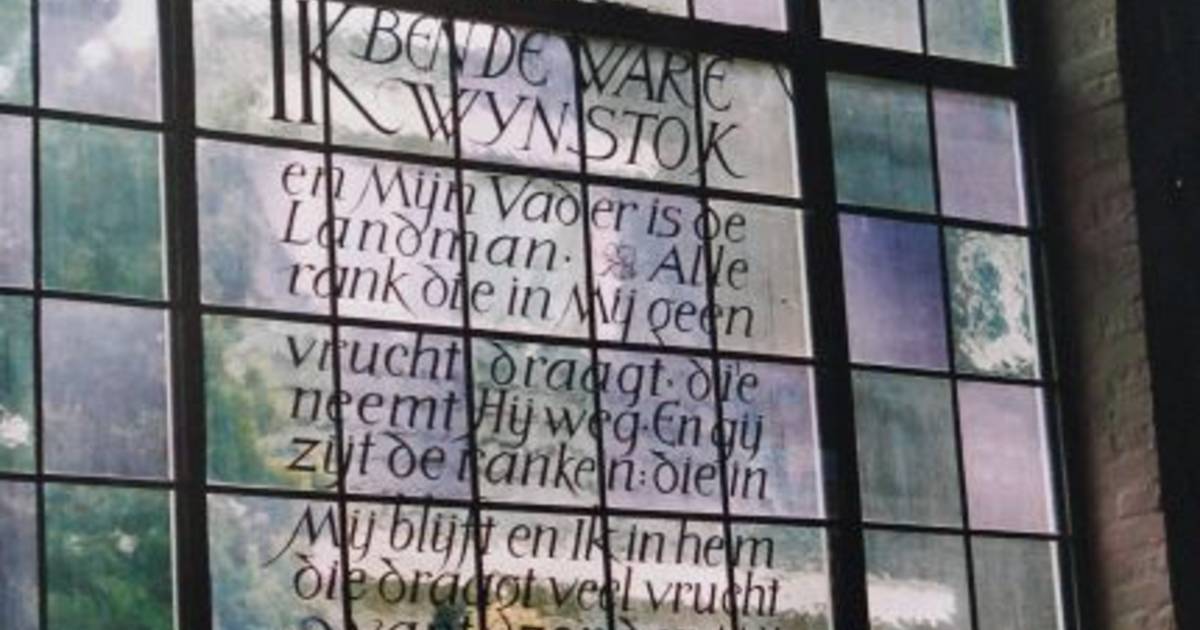 IK BEN DE WARE
WYNSTOK
en Mijn Vader is de
Landman. Alle
rank die in Mij geen
vrucht draagt. die
neemt Hij weg. En gij
zijt de ranken: die in
Mij blijft en Ik in hem
die draagt veel vrucht